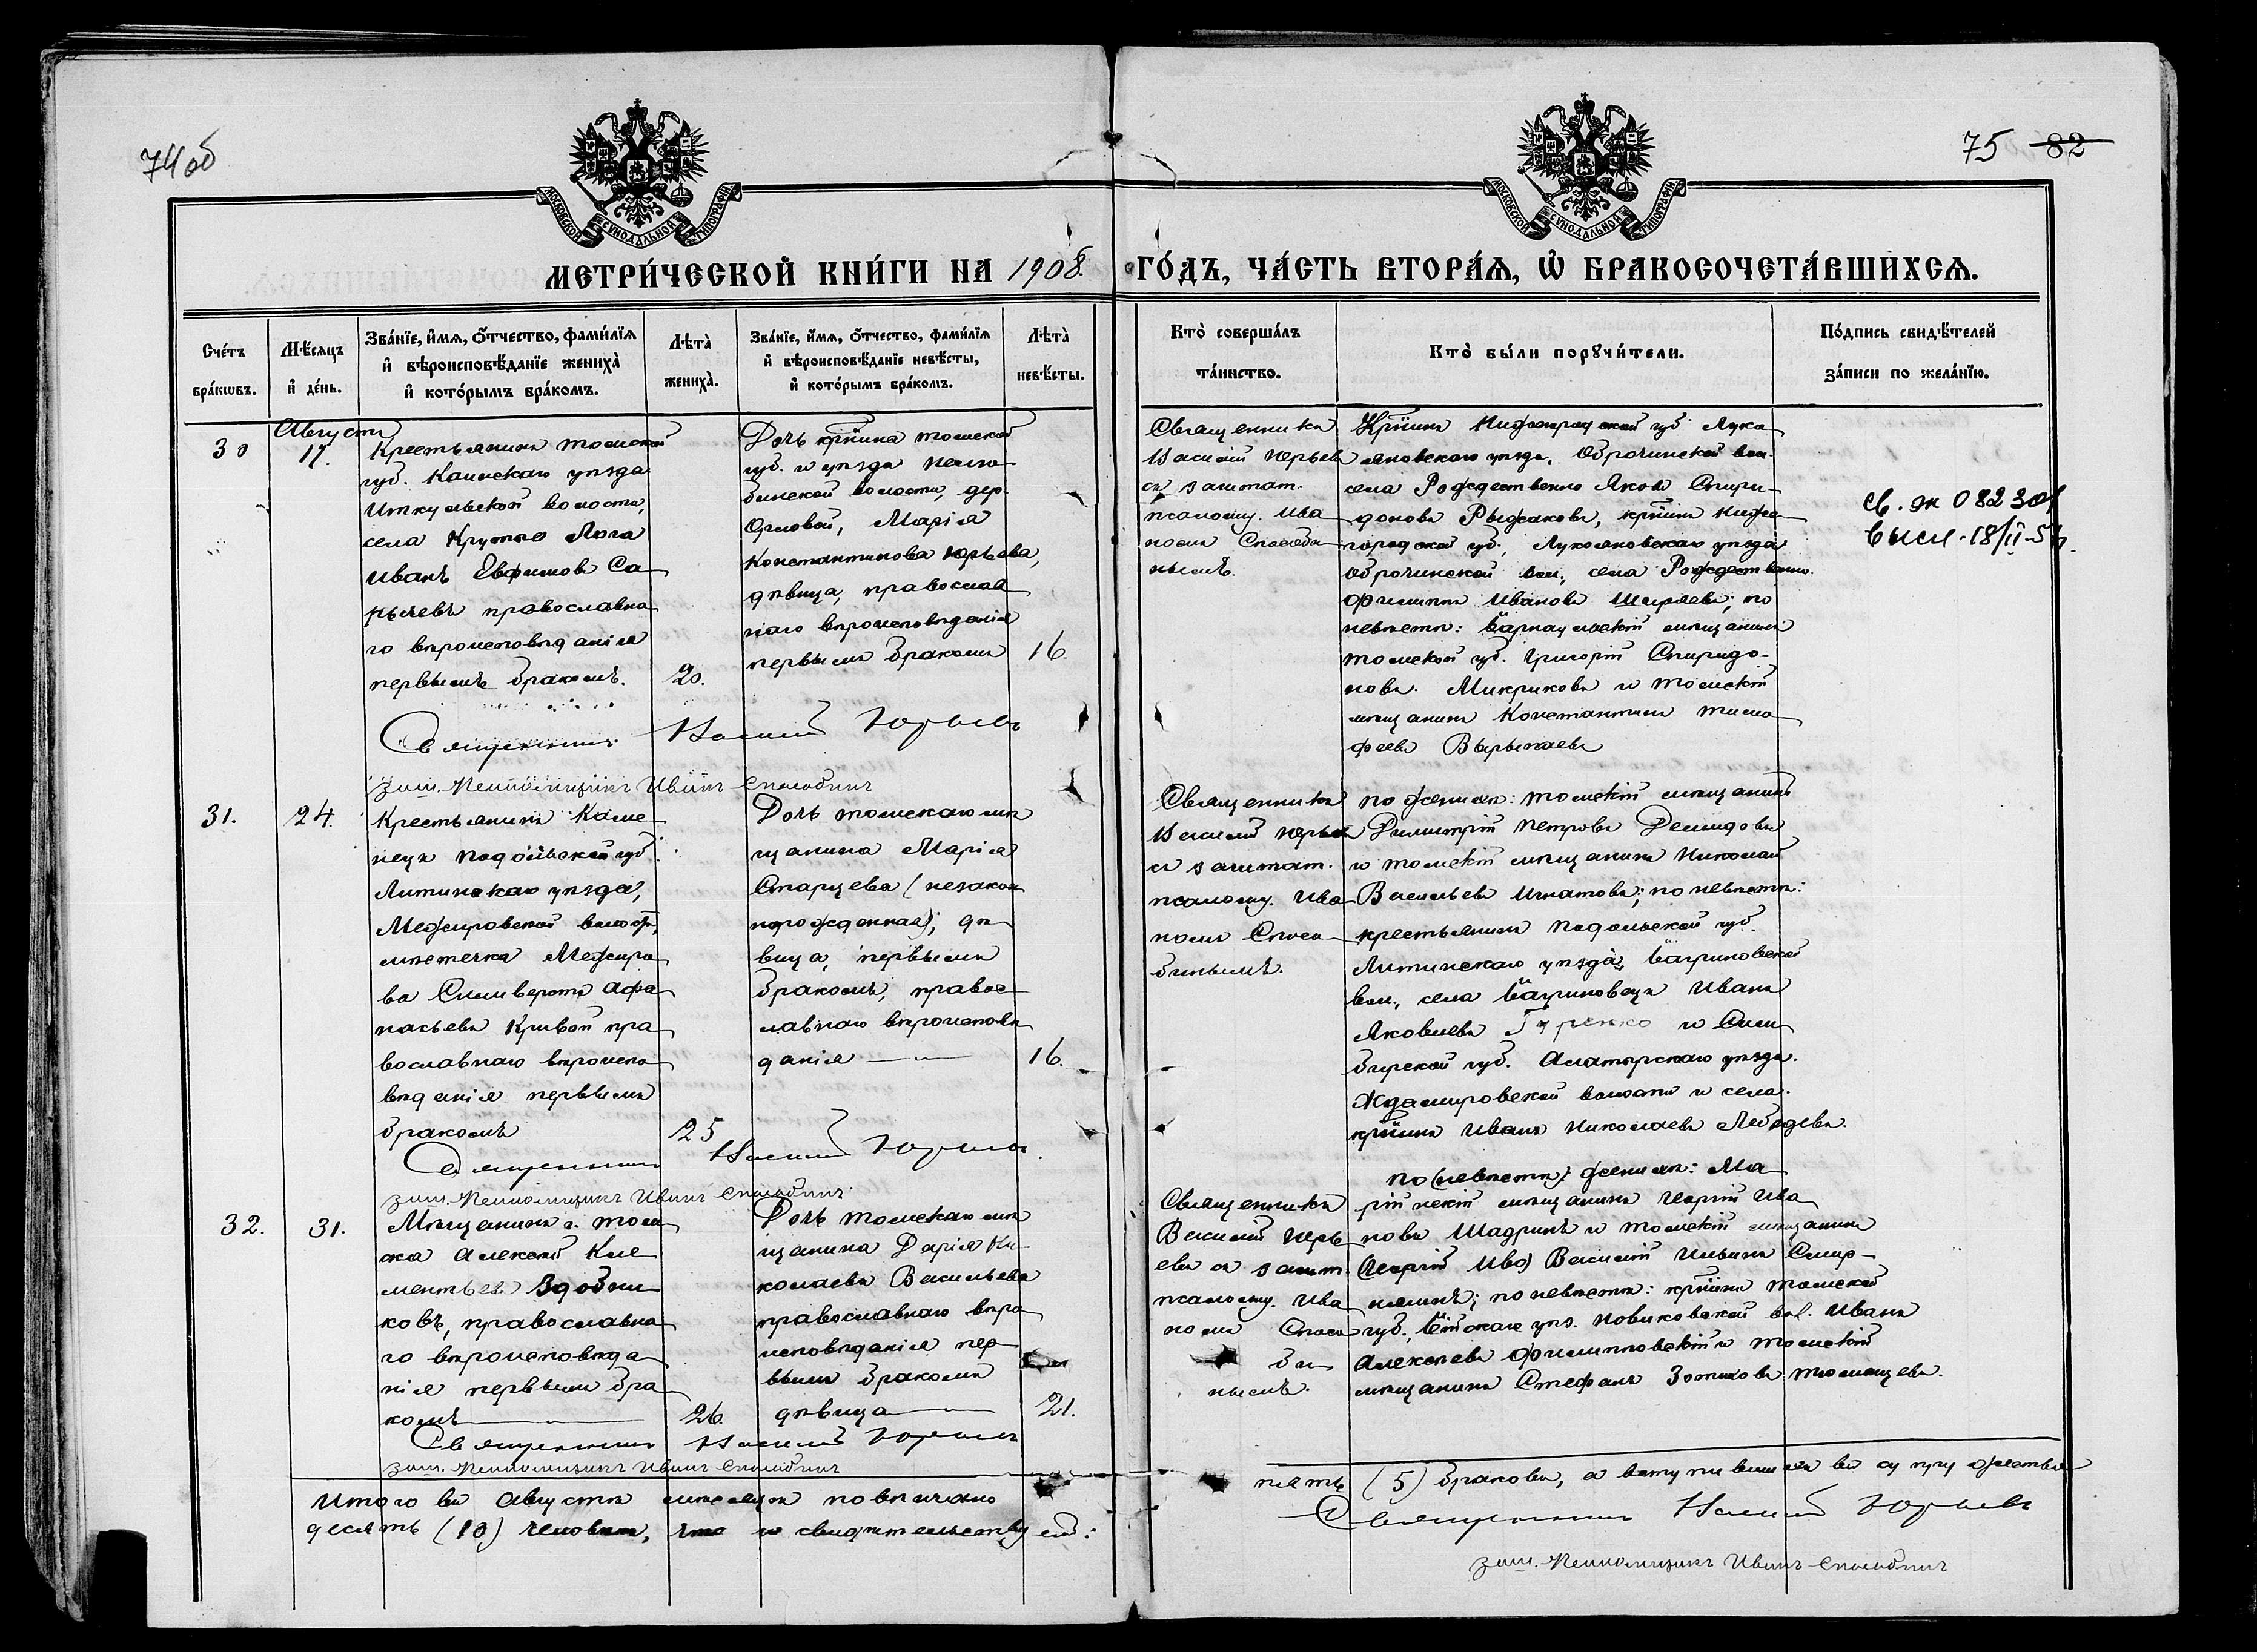 74 об
75 82
МОСКОВСКОЙ СѴНОДАЛЬНОЙ ТИПОГРАФІИ
МОСКОВСКОЙ СѴНОДАЛЬНОЙ ТИПОГРАФІИ
МЕТРИ́ЧЕСКОЙ КНИ́ГИ НА 1908 ГО́ДЪ, ЧА́СТЬ ВТОРА́Я, Ѡ БРАКОСОЧЕТА́ВШИХСЯ.
Сче́тъ
бра́кѡвъ.
Мѣ́сяцъ
и҆ де́нь.
Зва́нїе, и҆́мя, ѻ҆́тчество, фами́лїя
и҆ вѣроисповѣ́данїе жениха̀
и҆ кото́рымъ бра́комъ.
Лѣта̀
жениха̀.
Зва́нїе, и҆́мя, ѻ҆́тчество, фами́лїя
и҆ вѣроисповѣ́данїе невѣ́сты,
и҆ кото́рымъ бра́комъ.
Лѣта̀
невѣ́сты.
Кто̀ соверша́лъ
та́инство.
Кто̀ бы́ли порꙋчи́тели.
По́дпись свидѣ́телей
за́писи по жела́нїю.
30
Августа
17.
Крестьянинъ Томской
губ. Каинскаго уѣзда
Иткульской волости,
села Крутые Лога
Иванъ Евфимовъ Са
начевъ православна
го вѣроисповѣданія
первымъ бракомъ.
20.
Дочь кр̃ина Томской
губ. и уѣзда
волости, дер.
Орловой, Марія
Константинова Юрьева,
дѣвица, православ
наго вѣроисповѣданія
первымъ бракомъ
16.
Священникъ
Василій Юрьевъ
съ заштат.
псаломщ. Ива
номъ Способи
нымъ.
Кр̃инъ Нижегородской губ. Луко
яновскаго уѣзда, Оброчинской вол.
села Рождествено Яковъ Спири-
доновъ Рыжаковъ, кр̃инъ Ниже
городской губ., Лукояновскаго уѣзда
Оброчинской вол., села Рождествено
Филиппъ Ивановъ Ширяевъ; по
невѣстѣ: Барнаульскій мѣщанинъ
Томской губ. Григорій Спиридо-
новъ Микриковъ и Томскій
мѣщанинъ Константинъ Тимо
феевъ Вырыпаевъ
св. № 082304
высл. 18/II-57г.
Священникъ Василій Юрьевъ
заш. Псаломщикъ Иванъ Способинъ
31.
24.
Крестьянинъ Каме
нецъ Подольской губ.
Литинскаго уѣзда,
Межировской волости,
мѣстечка Межиро
ва Сильверстъ Афа
насьевъ Кривой пра
вославнаго вѣроиспо
вѣданія первымъ
бракомъ
25
Дочь Томскаго мѣ
щанина Марія
Старцева (незакон
норожденная); дѣ
вица, первымъ
бракомъ, правос
лавнаго вѣроисповѣ
данія
16.
Священникъ
Василій Юрьевъ
съ заштат.
псаломщ. Ива
номъ Спосо
бинымъ.
по женихѣ: Томскій мѣщанинъ
Димитрій Петровъ Демидовъ
и Томскій мѣщанинъ Николай
Васильевъ Игнатовъ; по невѣстѣ:
крестьянинъ Подольской губ.
Литинскаго уѣзда, Багриновской
вол., села Багриновецъ Иванъ
Яковлевъ Гуренко и Сим
бирской губ. Алатырскаго уѣзда.
Ждамировской волости и села.
кр̃инъ Иванъ Николаевъ Лебедевъ.
Священникъ Василій Юрьевъ.
заш. Псаломщикъ Иванъ Способинъ
32.
31.
Мѣщанинъ г. Том
ска Алексѣй Кле
ментьевъ Здобни
ковъ, православна
го вѣроисповѣда
нія первымъ бра
комъ
26.
Дочь Томскаго мѣ
щанина Дарія Ни-
колаева Васильева
православнаго вѣро
исповѣданія пер
вымъ бракомъ
дѣвица
21.
Священникъ
Василій Юрь
евъ съ зашт.
псаломщ. Ива
номъ Спосо
би
нымъ.
по (невѣстѣ) женихѣ: Ма
ріинскій мѣщанинъ Георгій Ива
новъ Шадринъ и Томскій мѣщанинъ
(Георгій Ива) Василій Ильинъ Смир-
нягинъ; по невѣстѣ: кр̃инъ Томской
губ., Бійскаго уѣз. Новиковской вол. Иванъ
Алексѣевъ Филипповскій и Томскій
мѣщанинъ Стефанъ Зотиковъ Томощевъ.
Священникъ Василій Юрьевъ
заш. Псаломщикъ Иванъ Способинъ
Итого въ Августѣ мѣсяцѣ повѣнчано пять (5) браковъ, а вступившихъ въ супружество
десять (10) человѣкъ, что и свидѣтельствуемъ: Священникъ Василій Юрьевъ
заш. Псаломщикъ Иванъ Способинъ